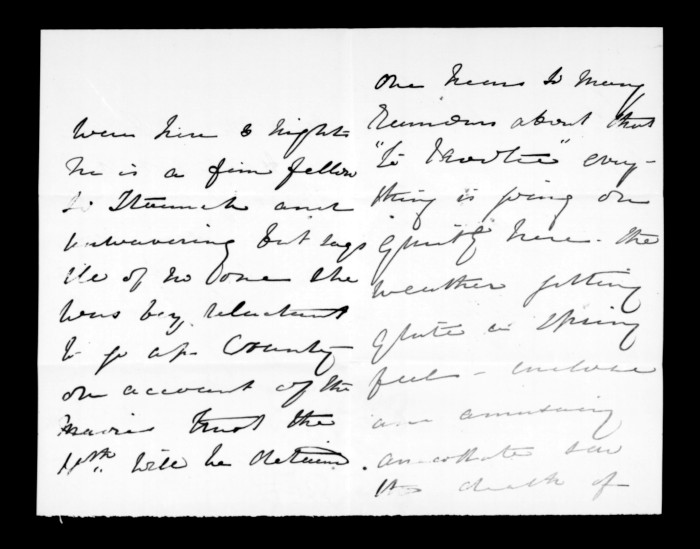 were here to night
he is a fine fellow
so staunch and
unwavering but says
ill of no one she
was very reluctant
to go up Country
on account of the
Maories trust the
will be detained.
one hears so many
rumours about that
every-
thing is going on
quietly here. the
weather getting
quite a Spring
feel - enclose
an amusing
anecdote saw
the death of